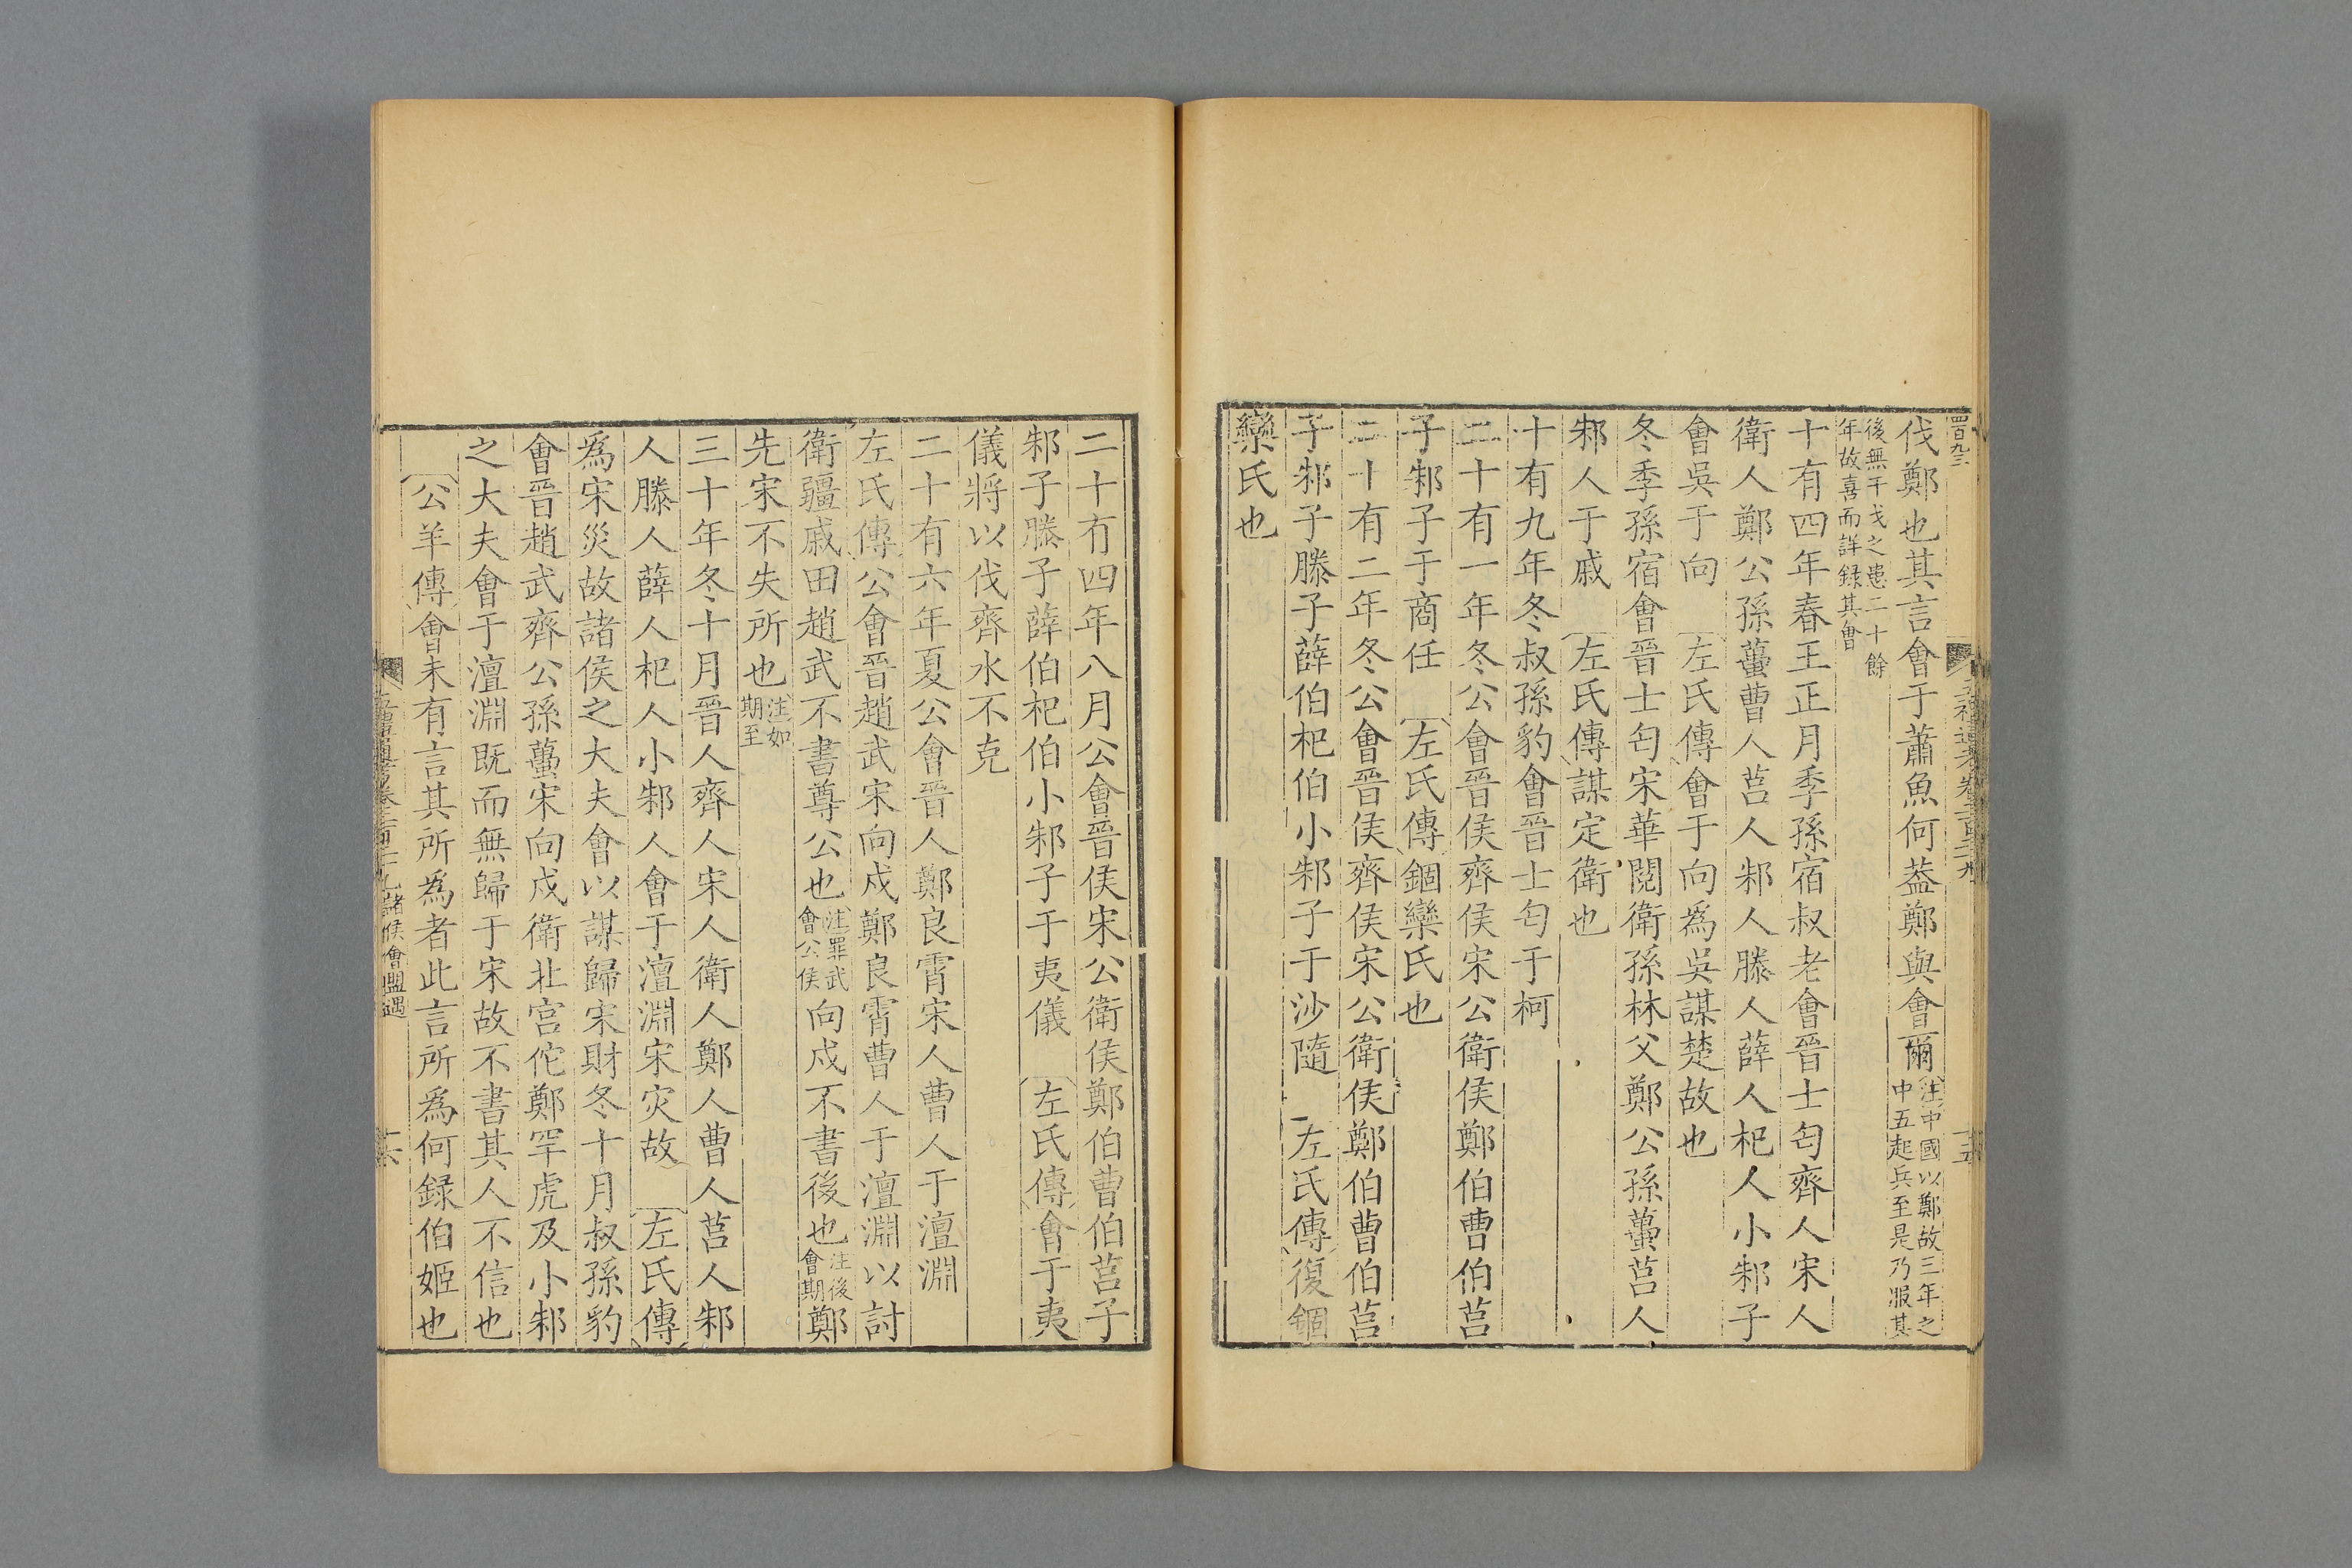 伐鄭也其言會于蕭魚何葢鄭與會爾注中國以鄭故三年之中五起兵至是乃服其
後無干戈之患二十餘年故喜而詳録其會
十有四年春王正月季孫宿叔老會晉士匄齊人宋人
衛人鄭公孫蠆曹人莒人邾人滕人薛人杞人小邾子
會吳于向　左氏傳會于向爲吳謀楚故也
冬季孫宿會晉士匄宋華閱衛孫林父鄭公孫蠆莒人
邾人于戚　左氏傳謀定衛也
十有九年冬叔孫豹會晉士匄于柯
二十有一年冬公會晉侯齊侯宋公衛侯鄭伯曹伯莒
子邾子于商任　左氏傳錮欒氏也
二十有二年冬公會晉侯齊侯宋公衛侯鄭伯曹伯莒
子邾子滕子薛伯杞伯小邾子于沙隨　左氏傳復錮
欒氏也
二十有四年八月公會晉侯宋公衛侯鄭伯曹伯莒子
邾子滕子薛伯杞伯小邾子于夷儀　左氏傳會于夷
儀將以伐齊水不克
二十有六年夏公會晉人鄭良霄宋人曹人于澶淵
左氏傳公會晉趙武宋向戍鄭良霄曹人于澶淵以討
衛疆戚田趙武不書尊公也注罪武會公侯向戍不書後也注後會期鄭
先宋不失所也注如期至
三十年冬十月晉人齊人宋人衛人鄭人曹人莒人邾
人滕人薛人杞人小邾人會于澶淵宋灾故　左氏傳
爲宋災故諸侯之大夫會以謀歸宋財冬十月叔孫豹
會晉趙武齊公孫蠆宋向戍衛北宫佗鄭罕虎及小邾
之大夫會于澶淵既而無歸于宋故不書其人不信也
公羊傳會未有言其所爲者此言所爲何録伯姬也
諸侯會盟遇